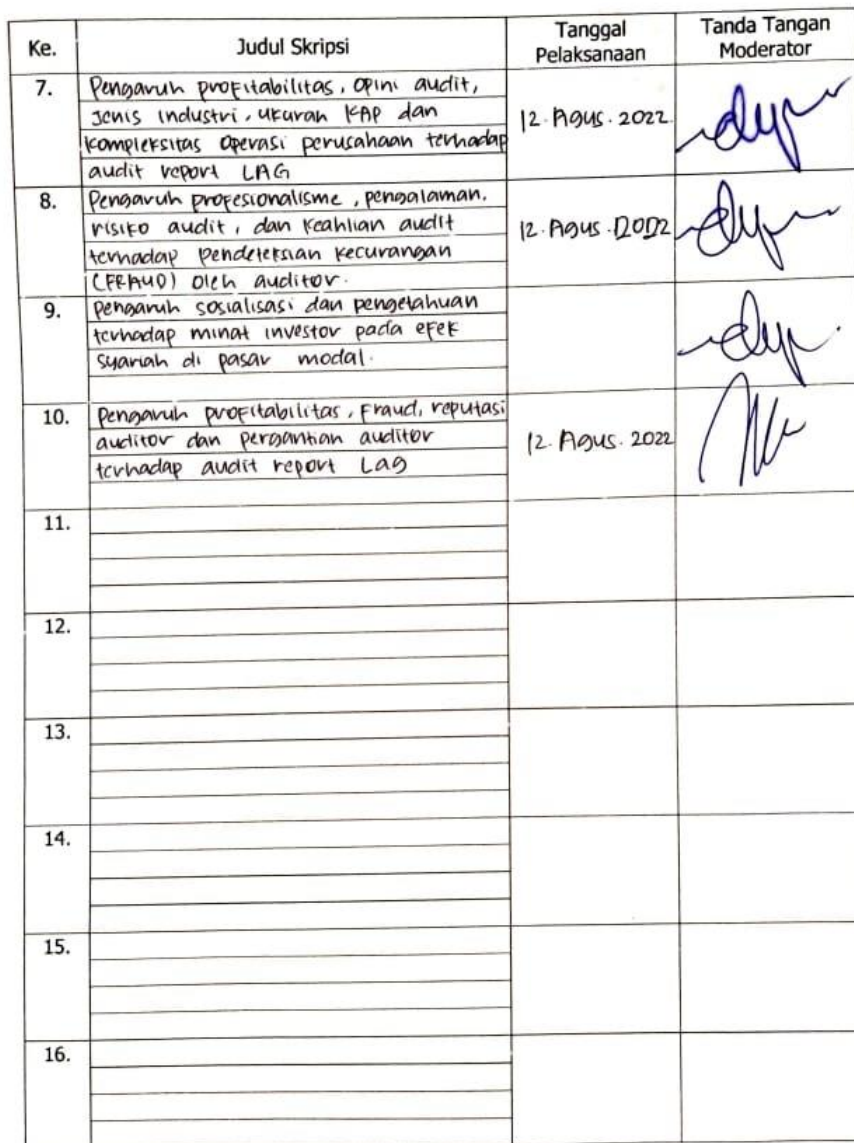 Ke. Judul Skripsi Tanggal Pelaksanaan Tanda Tangan Moderator
7. Pengaruh profitabilitas, opini audit,
Jenis industri, ukuran KAP dan
kompleksitas operasi perusahaan terhadap
audit report LAG
12. Agus. 2022
8. Pengaruh profesionalisme, pengalaman,
risiko audit, dan keahlian audit
terhadap pendeteksian kecurangan
(FRAUD) oleh auditor.
12. Agus. 2022
9. Pengaruh sosialisasi dan pengetahuan
terhadap minat investor pada efek
syariah di pasar modal.
10. Pengaruh profitabilitas, Fraud, reputasi
auditor dan pergantian auditor
terhadap audit report Lag
12. Agus. 2022
11.
12.
13.
14.
15.
16.